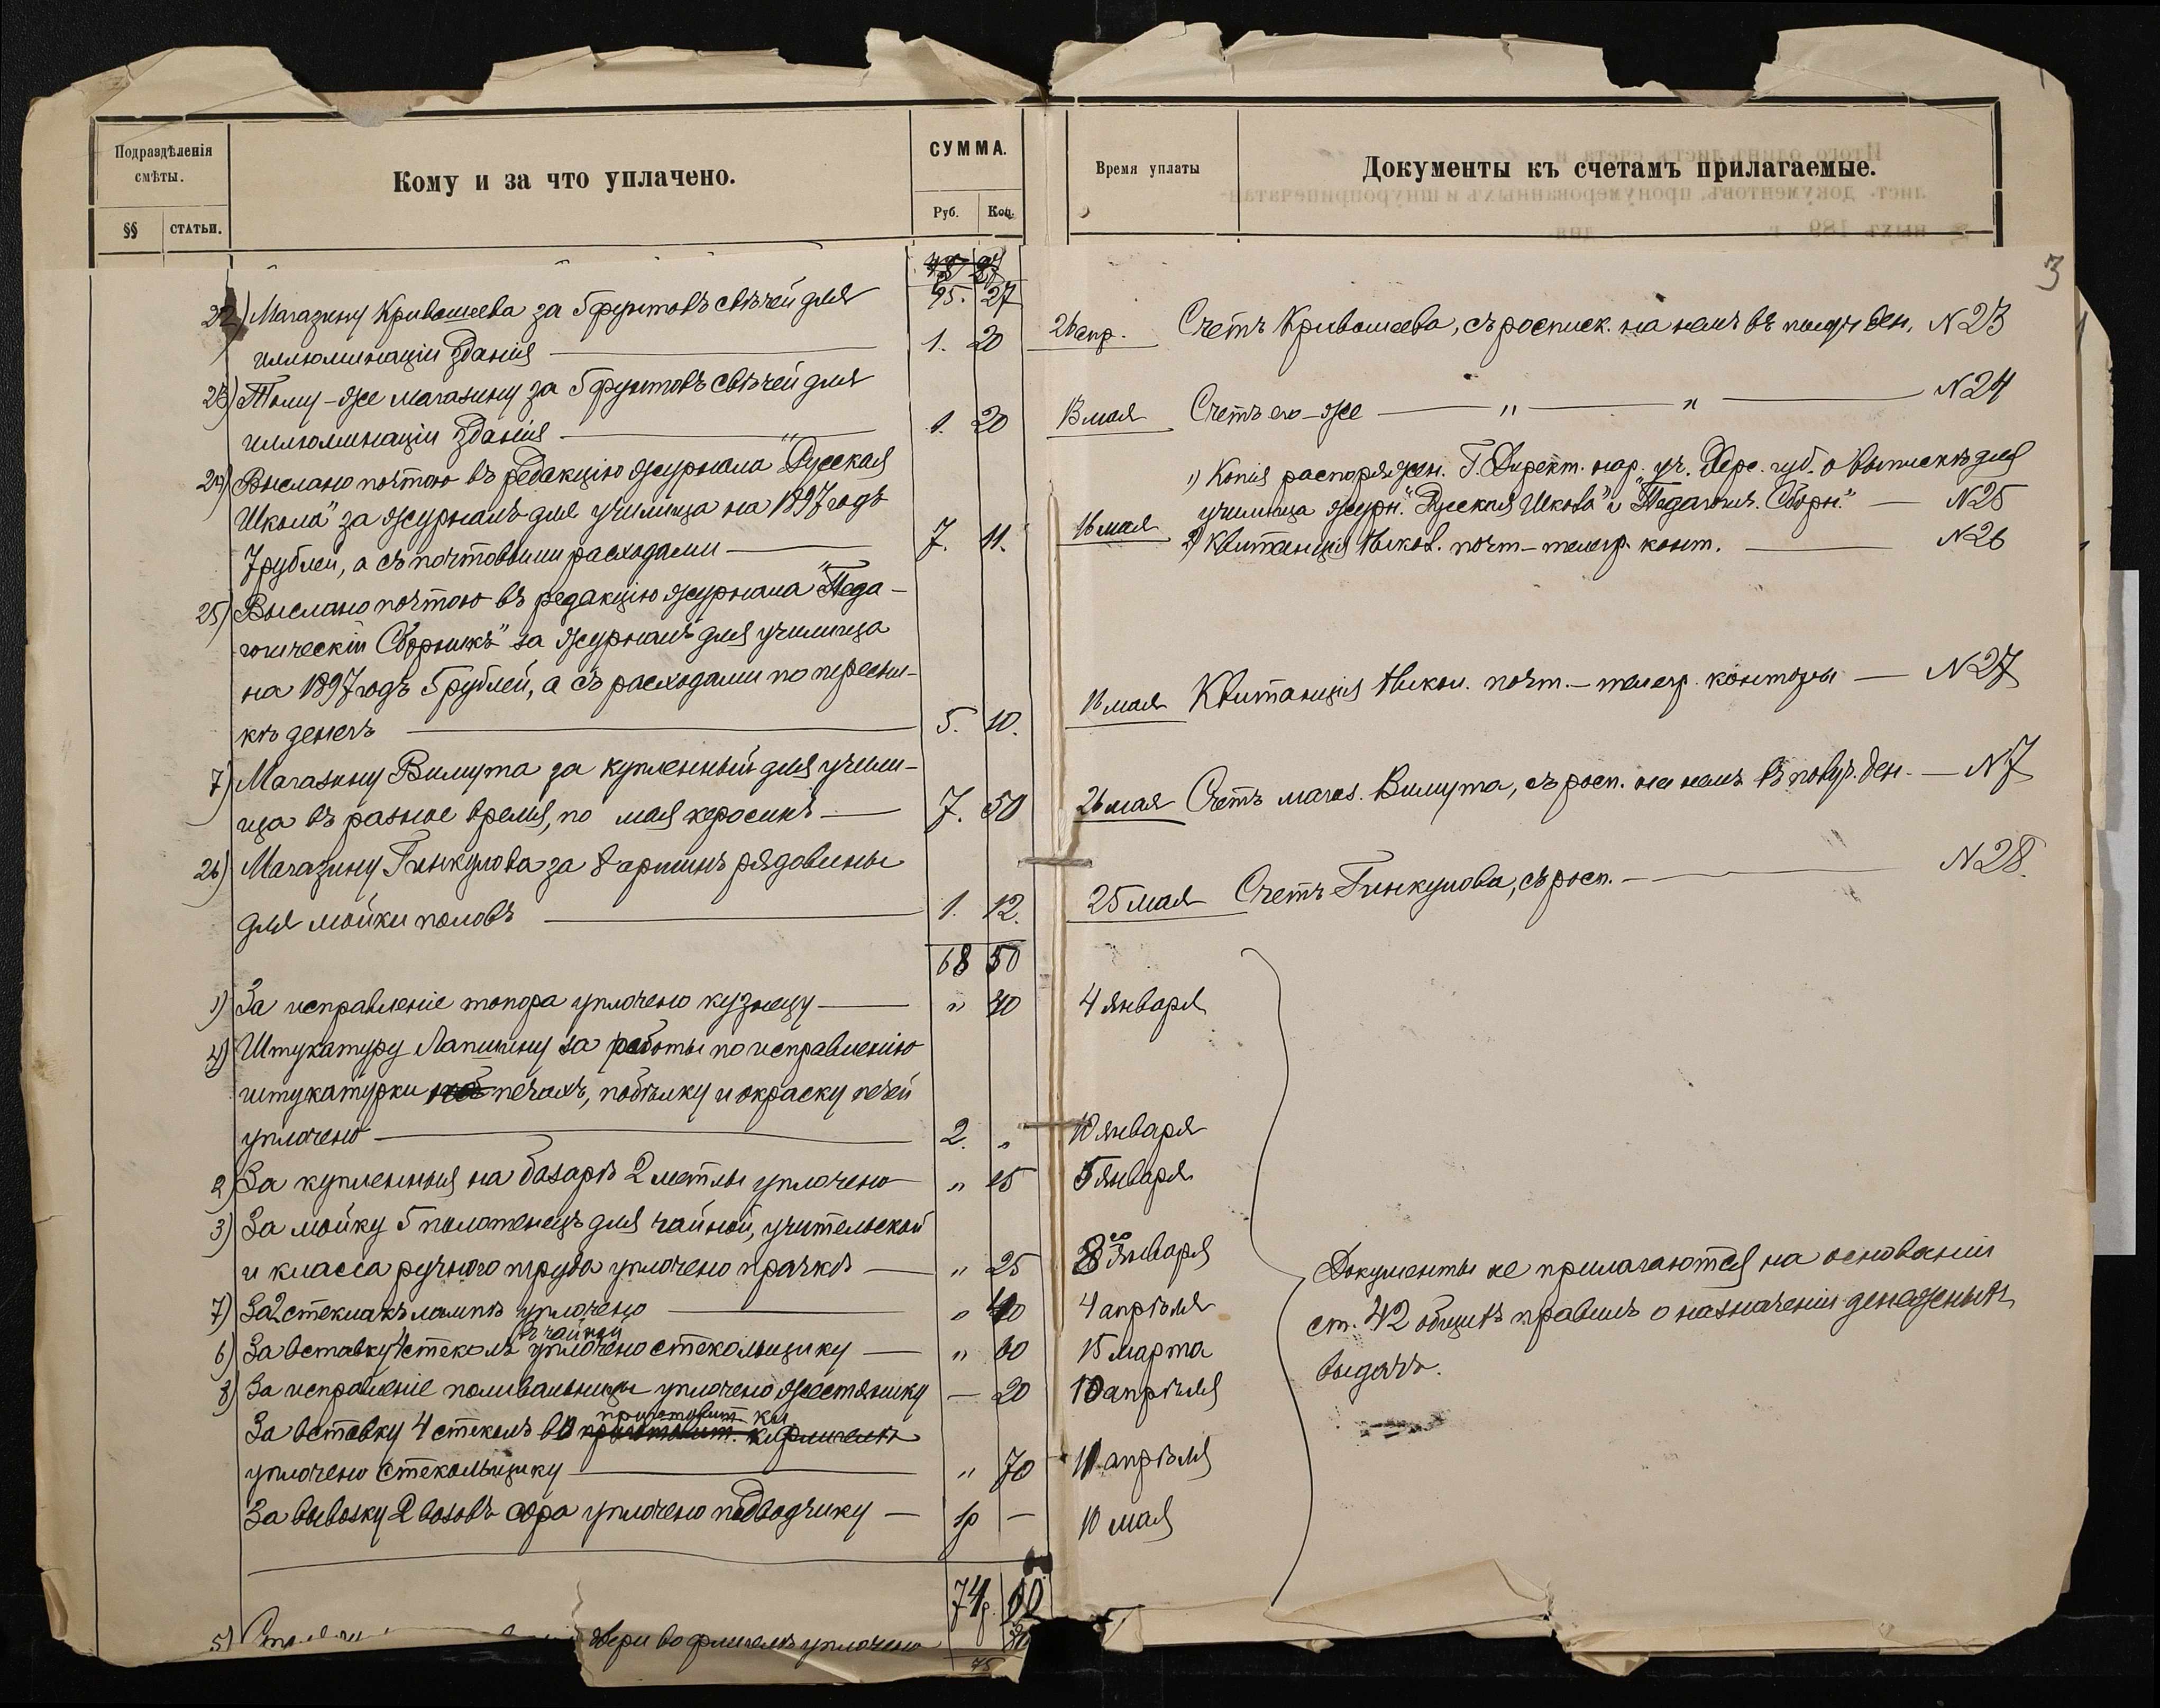 Подраздѣленія
смѣты.
§§
СТАТЬИ.
Кому и за что уплачено.
СУММА.
Руб.
Коп.
45. 27
22) Магазину Кривошеева за 5 фунтовъ свѣчей для
иллюминаціи зданія — 1. 20
23) Тому-же магазину за 5 фунтовъ свѣчей для
иллюминаціи зданія — 1. 20
24) Выслано почтою въ редакцію журнала "Русская
Школа" за журналъ для училища на 1897 годъ
7 рублей, а съ почтовыми расходами — 7. 11.
25) Выслано почтою въ редакцію журнала "Педа-
гогическій Сборникъ" за журналъ для училища
на 1897 годъ 5 рублей, а съ расходами по пересыл-
кѣ денегъ — 5. 10.
7) Магазину Вилмута за купленный для учили-
ща въ разное время, по мая керосинъ — 7. 50
26) Магазину Гинкулова за 8 аршинъ рядовины
для мойки половъ — 1. 12.
68 50
1) За исправленіе топора уплочено кузнецу — " 40
4) Штукатуру Лапшину за работы по исправленію
штукатурки печахъ, побѣлку и окраску печей
уплочено — 2. "
2) За купленныя на базарѣ 2 метлы уплочено — " 15
3) За мойку 5 полотенецъ для чайной, учительской
и класса ручного труда уплочено прачкѣ — " 25
7) За 2 стекла къ лампѣ уплочено — " 40
въ чайной
6) За вставку 4 стеколъ уплочено стекольщику — " 60
8) За исправленіе поливальницы уплочено жестянику — 20
приготовит. кл
За вставку 4 стеколъ въ
уплочено стекольщику — " 70
За вывозку 2 возовъ сора уплочено подводчику — 1р —
74р. 60
5) двери во флигелѣ уплочено 30
75
Время уплаты
Документы къ счетамъ прилагаемые.
3
26 апр. Счетъ Кривошеева, съ росписк. на немъ въ получ. ден. N 23
13 мая Счетъ его-же — " — " — N 24
1) Копія распоряжен. Г. Директ. нар. уч. Хэрс. губ. о выпискѣ для
училища журн. "Русская Школа" и "Педагогич. Сборн." — N 25
16 мая 2) Квитанція Никол. почт.-телегр. конт. — N 26
16 мая Квитанція Никол. почт.-телегр. конторы — N 27
26 мая Счетъ магаз. Вилмута, съ росп. на немъ въ получ. ден. — N 7
25 мая Счетъ Гинкулова, съ росп. — N 28.
4 января
10 января
5 января
8го января
4 апрѣля
15 марта
10 апрѣля
11 апрѣля
10 мая
Документы не прилагаются на основаніи
ст. 42 общихъ правилъ о назначеніи денежныхъ
выдачъ.